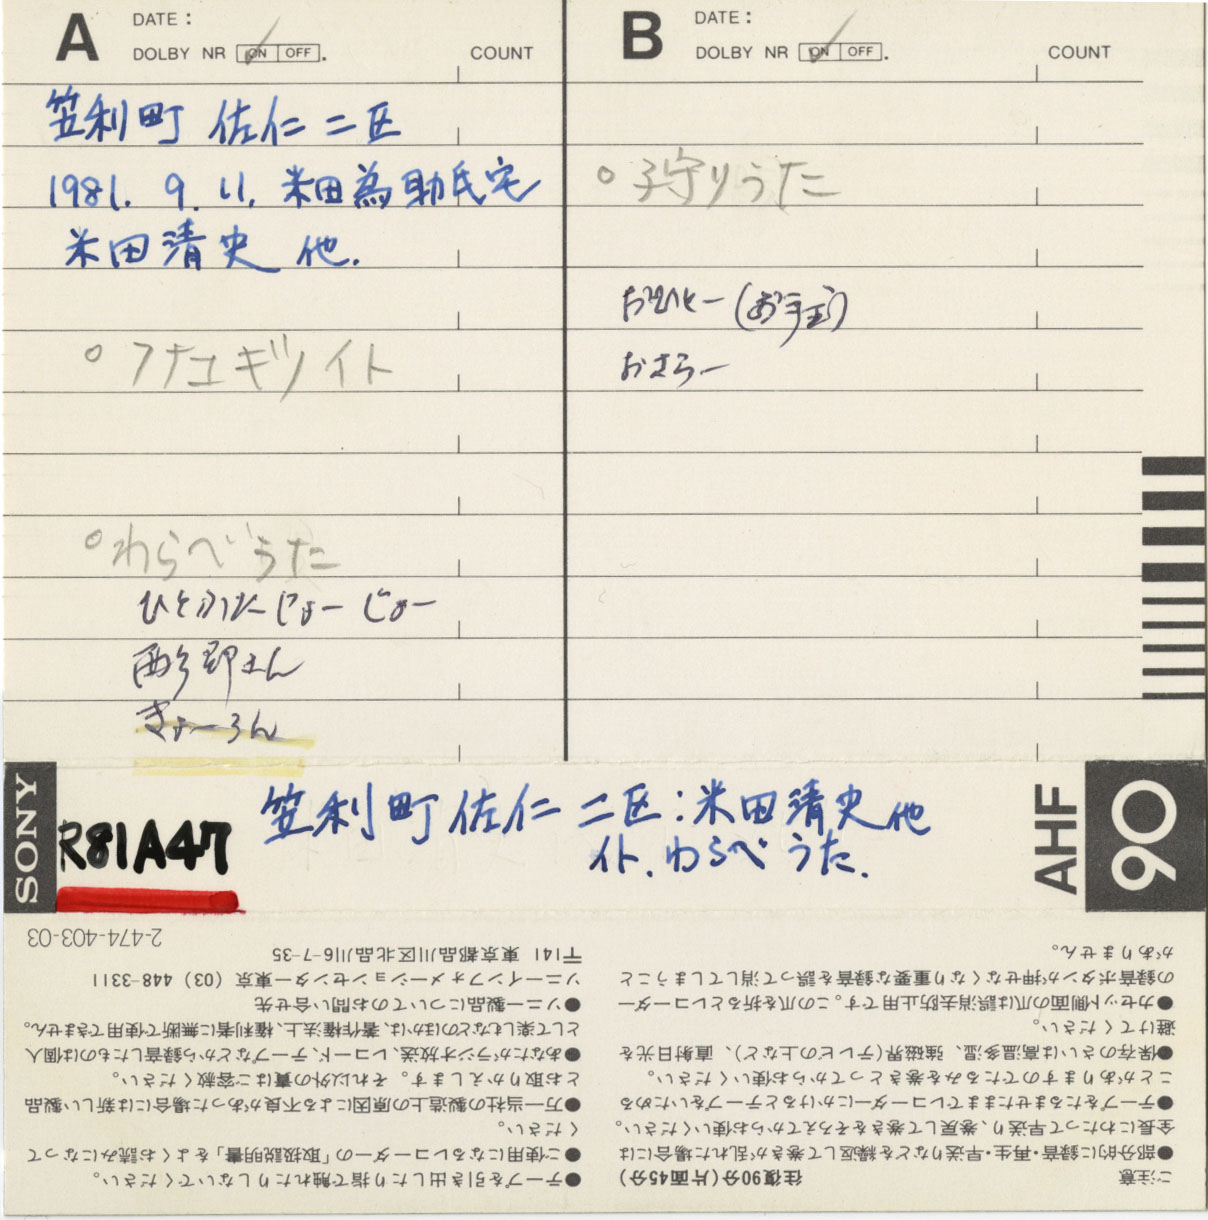 A DATE:
DOLBY NR ON OFF. COUNT
笠利町 佐仁 二区
1981. 9. 11. 米田為助氏宅
米田清史 他.
○ フナユギツイト
○ わらべうた
ひとふたじょーじょー
西郷さん
きょーろん
B DATE:
DOLBY NR ON OFF. COUNT
○ 子守りうた
おひとー(お手玉)
おさらー
SONY
R81A47
笠利町 佐仁 二区:米田清史他
イト. わらべうた.
AHF
90
ご注意 往復90分(片面45分)
●部分的に録音・再生・早送りなどを繰返して巻きが乱れた場合には
全長にわたって早送り、巻戻して巻きをそろえてからお使いください。
●テープをたるませたままでレコーダーにかけるとテープをいためる
ことがありますのでたるみを巻きとってからお使いください。
●保存のさいは高温多湿、強磁界(テレビの上など)、直射日光を
避けてください。
●カセット側面の爪は誤消去防止用です。この爪を折るとレコーダー
の録音ボタンが押せなくなり重要な録音を誤って消してしまうこと
がありません。
●テープを引き出したり指で触れたりしないでください。
●ご使用になるレコーダーの「取扱説明書」をよくお読みになって
ください。
●万一当社の製造上の原因による不良があった場合には新しい製品
とお取りかえします。それ以外の責はご容赦ください。
●あなたがラジオ放送、レコード、テープなどから録音したものは個人
として楽しむなどのほかは、著作権法上、権利者に無断で使用できません。
●ソニー製品についてのお問い合せ先
ソニーインフォメーションセンター東京 (03) 448-3311
〒141 東京都品川区北品川6-7-35
2-474-403-03